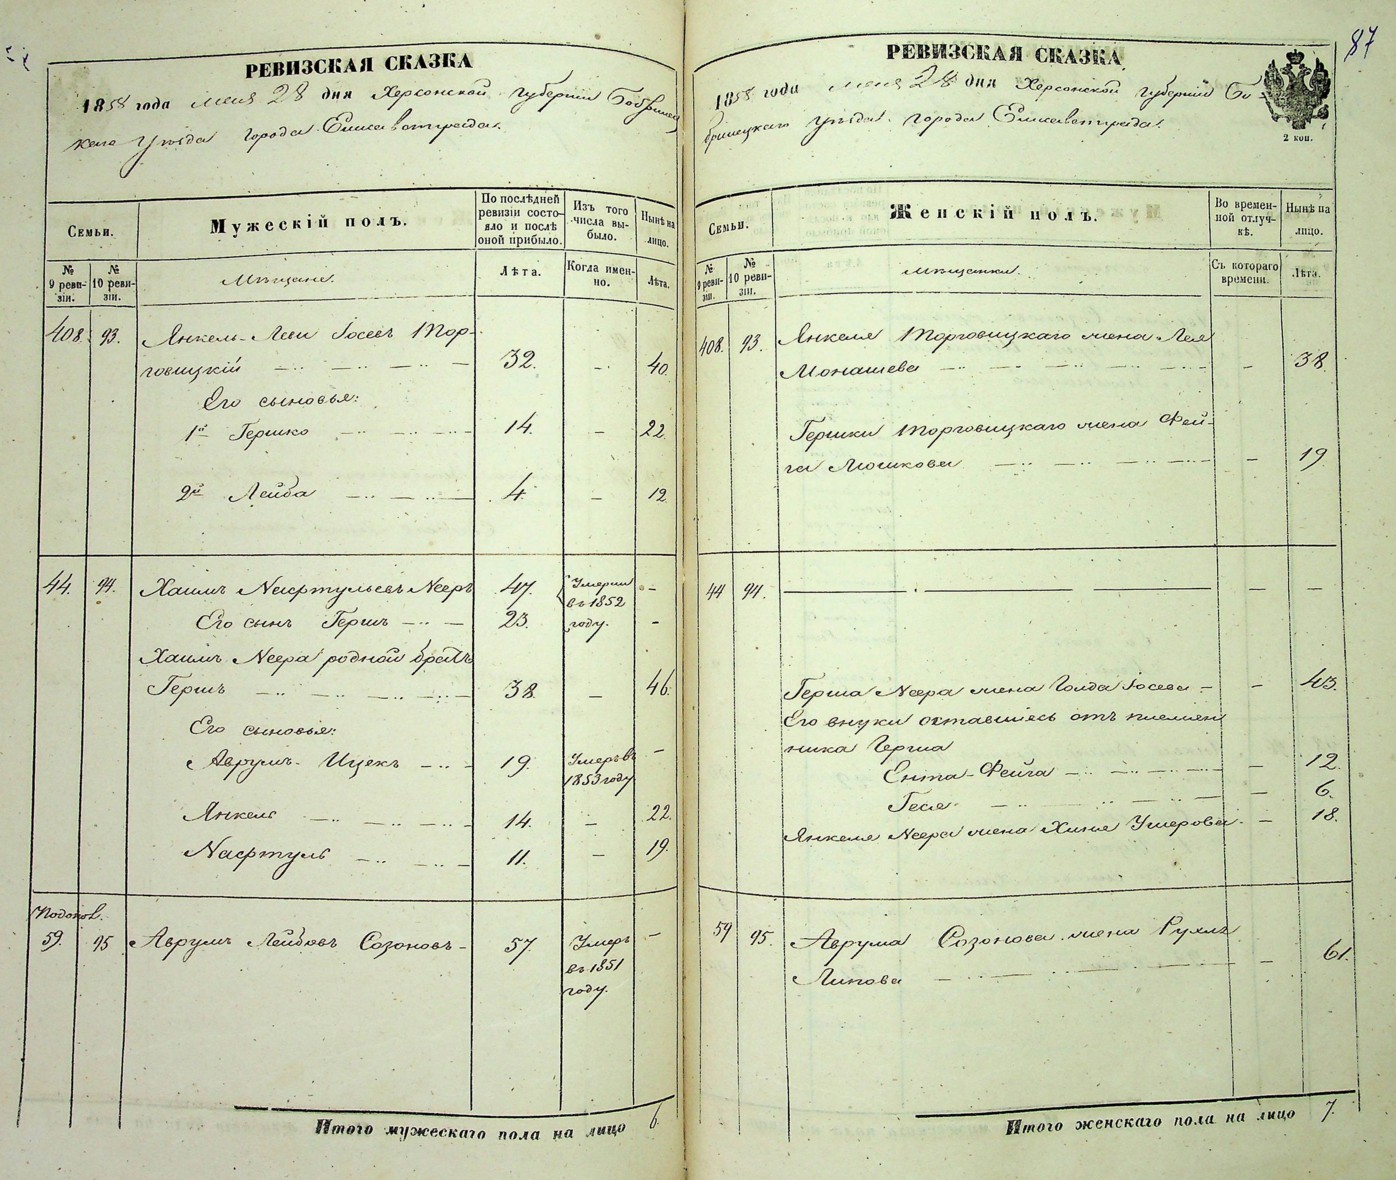 РЕВИЗСКАЯ СКАЗКА
1858 года мая 28 дня Херсонской губерніи Бобринец
каго уѣзда города Елисаветграда.
Семьи.
Мужескій полъ.
По послѣдней ревизіи состояло и послѣ оной прибыло.
Изъ того числа выбыло.
Нынѣ на лицо.
№ 9 ревизіи.
№ 10 ревизіи.
Мѣщане.
Лѣта.
Когда именно.
Лѣта.
408. 93. Янкель-Леви Іосевъ Тор-
говицкій 32. - 40.
Его сыновья:
1й Гершко 14. - 22
2й Лейба 4. - 12
44. 94. Хаимъ Нафтульевъ Нееръ 47. Умерли -
Его сынъ Гершъ 23. въ 1852 году. -
Хаима Неера родной братъ
Гершъ 38 - 46.
Его сыновья:
Аврумъ-Ицекъ 19. Умеръ въ 1853 году -
Янкель 14. - 22.
Нафтуль 11. - 19.
59. 95 Аврумъ Лейбовъ Созоновъ 57. Умеръ въ 1851 году. -
Итого мужескаго пола на лицо 6.
87
РЕВИЗСКАЯ СКАЗКА
1858 года мая 28 дня Херсонской губерніи Бо-
бринецкаго уѣзда города Елисаветграда.
2 коп.
Семьи.
Женскій полъ.
Во временной отлучкѣ.
Нынѣ на лицо.
№ 9 ревизіи.
№ 10 ревизіи.
Мѣщанки.
Съ котораго времени.
Лѣта.
408. 93. Янкеля Торговицкаго жена Лея
Монашева - 38
Гершки Торговицкаго жена Фей-
га Мошкова - 19
44 94. - -
Герша Неера жена Голда Іосева - 43.
Его внуки оставшіесь отъ племян
ника Герша
Ента-Фейга - 12
Геся - 6.
Янкеля Неера жена Хинье Умерова - 18.
59 95. Аврума Созонова жена Рухль
Липова - 61.
Итого женскаго пола на лицо 7.